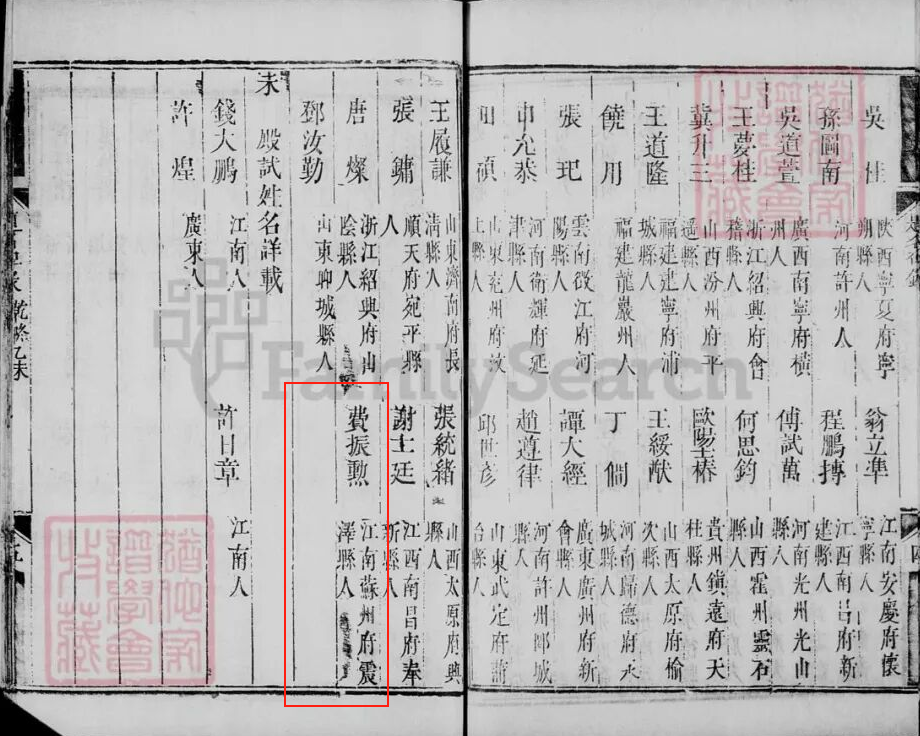 吳桂 陝西寧夏府寧朔縣人
翁立準 江南安慶府懷寧縣人
孫圖南 河南許州人
程鵬摶 江西南昌府新建縣人
吳道萱 廣西南寧府橫州人
傅試萬 河南光州光山縣人
王夢桂 浙江紹興府會稽縣人
何思鈞 山西霍州靈石縣人
冀升三 山西汾州府平遙縣人
歐陽椿 貴州鎮遠府天柱縣人
王道隆 福建建寧府浦城縣人
王綏猷 山西太原府榆次縣人
饒用 福建龍巖州人
丁僩 河南歸德府永城縣人
張玘 雲南徵江府河陽縣人
譚大經 廣東廣州府新會縣人
申允恭 河南衛輝府延津縣人
趙遵律 河南許州郾城縣人
田碩 山東兖州府汶上縣人
邱世彥 山東武定府
王履謙 山東濟南府長淸縣人
張統緒 山西太原府興縣人
張鏞 順天府宛平縣人
謝士廷 江西南昌府奉新縣人
唐燦 浙江紹興府山陰縣人
費振勲 江南蘇州府震澤縣人
鄧汝勤 山東聊城縣人
未殿試姓名詳載
錢大鵬 江南人
許日章 江南人
許煌 廣東人
乾隆乙未
五
FamilySearch